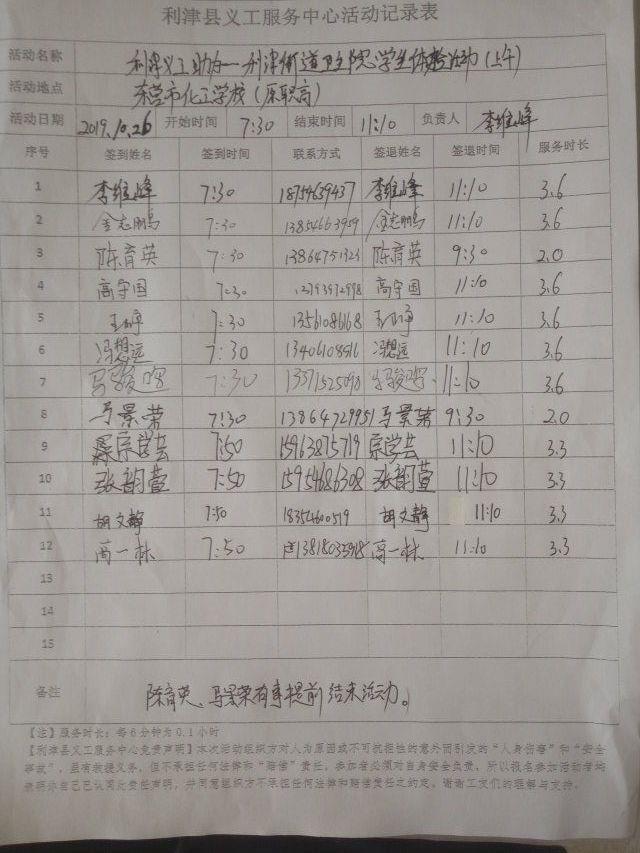 利津县义工服务中心活动记录表
活动名称 利津义工助力一利津街道卫生院学生体检活动(上午)
活动地点 东营市化工学校(原职高)
活动日期 2019.10.26 开始时间 7:30 结束时间 11:10 负责人 李维峰
序号 签到姓名 签到时间 联系方式 签退姓名 签退时间 服务时长
1 李维峰 7:30 18754639437 李维峰 11:10 3.6
2 金志鹏 7:30 13854663959 金志鹏 11:10 3.6
3 陈育英 7:30 13864751323 陈育英 9:30 2.0
4 高守国 7:30 高守国 11:10 3.6
5 7:30 13561086168 11:10 3.6
6 冯想远 7:30 13406108816 冯想远 11:10 3.6
7 7:30 13371525098 11:10 3.6
8 马景荣 7:30 13864729951 马景荣 9:30 2.0
9 宗学芸 7:50 15963875719 宗学芸 11:10 3.3
10 张韵萱 7:50 15954686308 张韵萱 11:10 3.3
11 胡文静 7:50 18354600519 胡文静 11:10 3.3
12 高一林 7:50 13818035918 高一林 11:10 3.3
13
14
15
备注 陈育英、马景荣有事提前结束活动。
【注】服务时长:每6分钟为0.1小时
【利津县义工服务中心免责声明】本次活动组织方对人为原因或不可抗拒性的意外而引发的“人身伤害”和“安全
事故”,虽有救援义务,但不承担任何法律和“赔偿”责任。参加者必须对自身安全负责,所以报名参加活动者均
表明你自己已认同此责任声明,并同意组织方不承担任何法律和赔偿责任之约定。谢谢工友们的理解与支持。